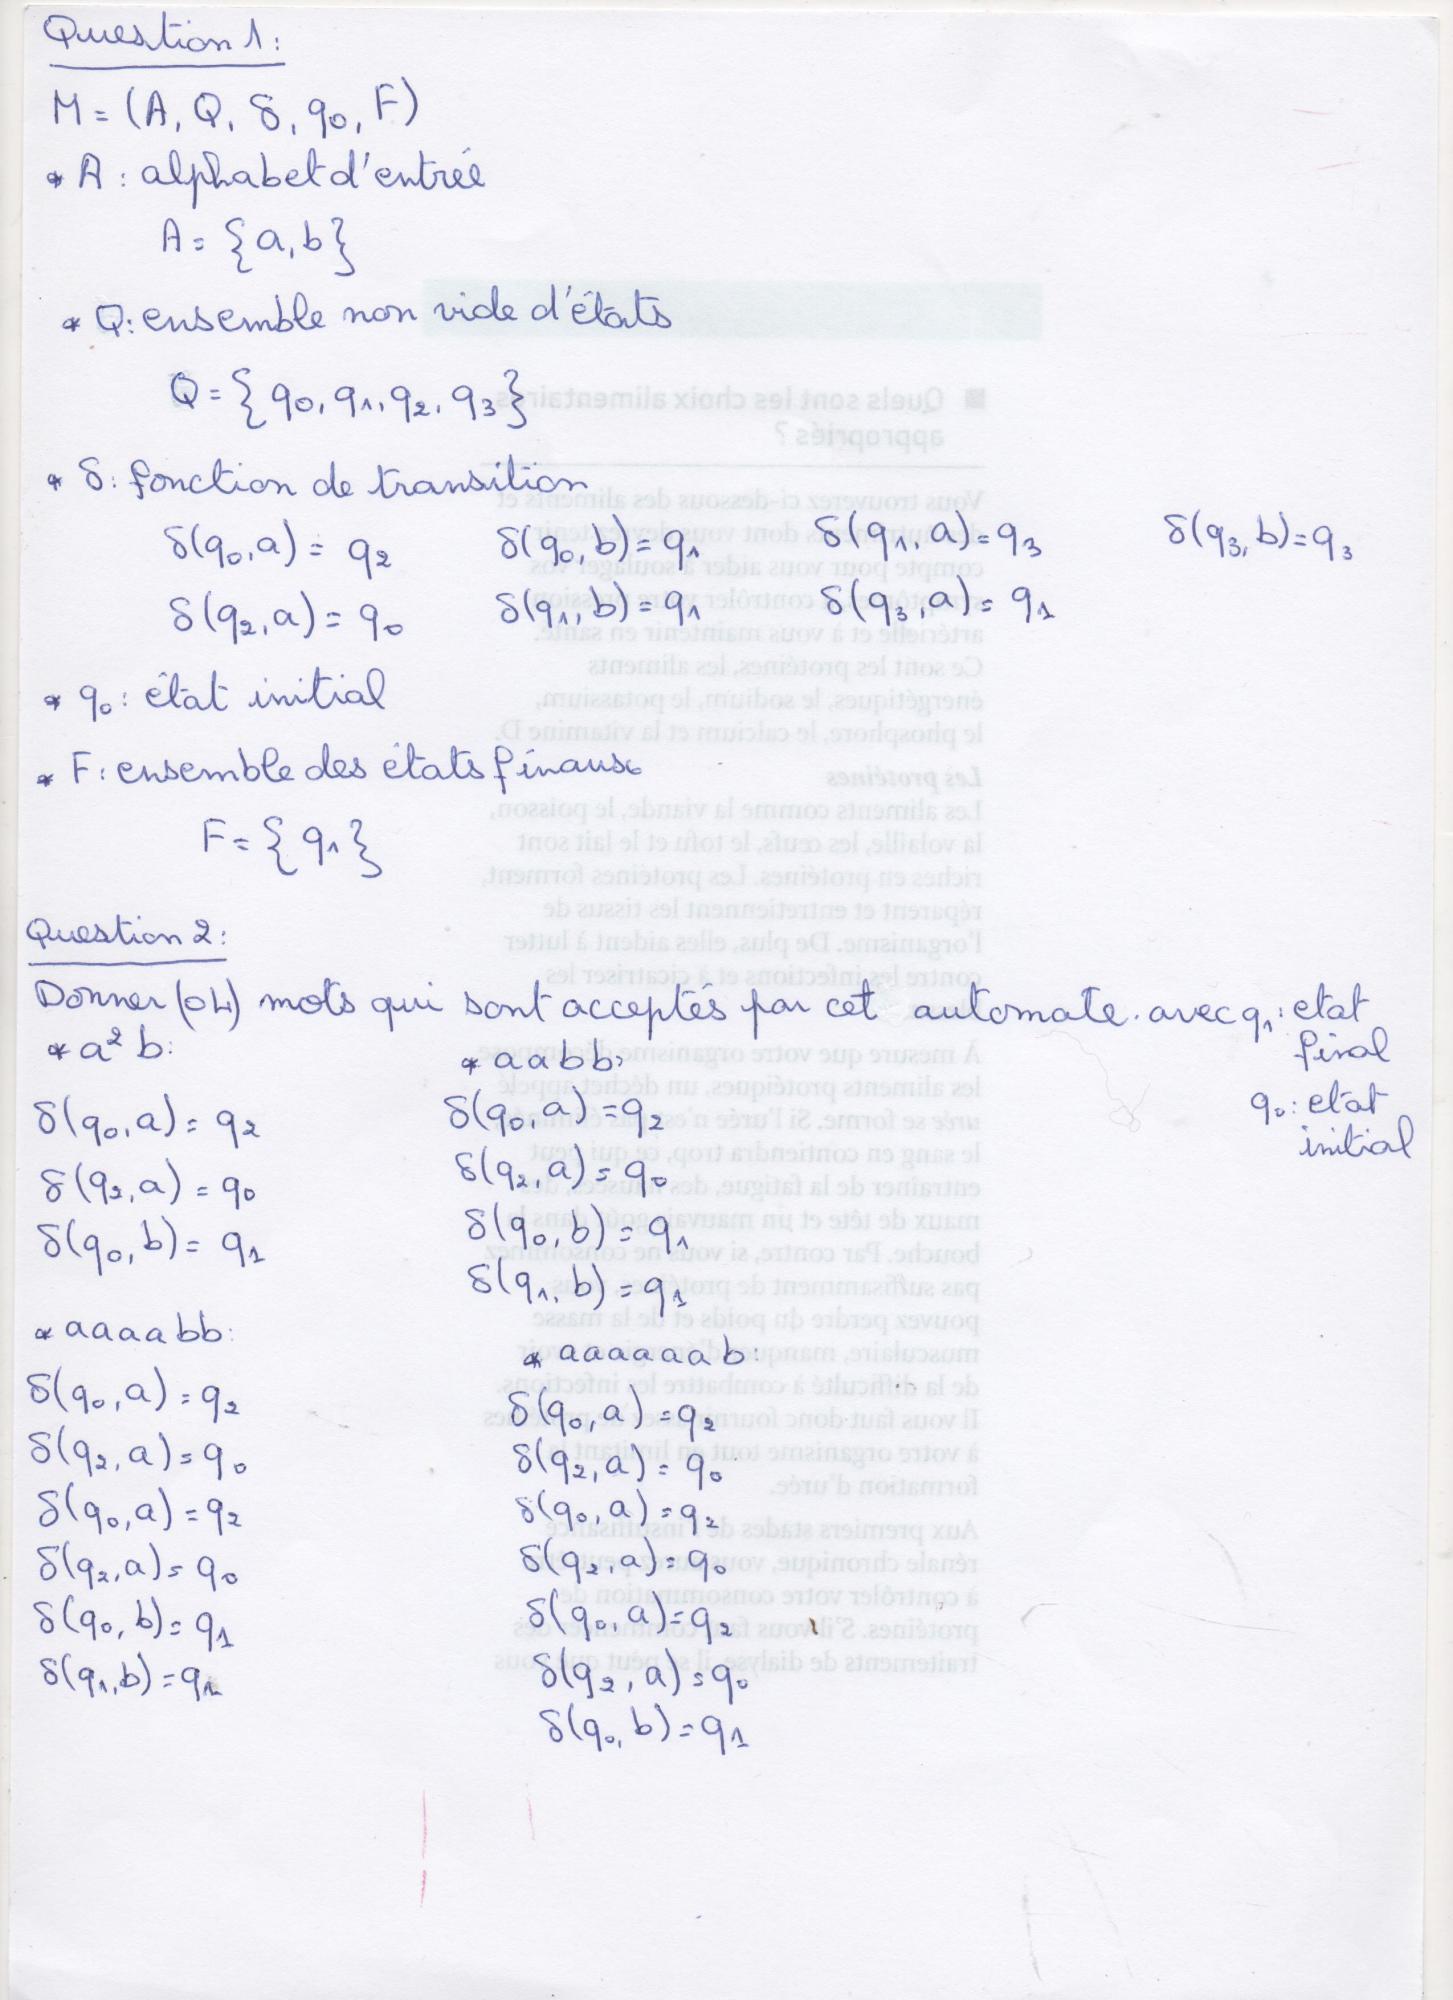 Question 1:
M = (A, Q, δ, q0, F)
* A : alphabet d'entrée
A = {a, b}
* Q : ensemble non vide d'états
Q = {q0, q1, q2, q3}
* δ : fonction de transition
δ(q0, a) = q2 δ(q0, b) = q1 δ(q1, a) = q3 δ(q3, b) = q3
δ(q2, a) = q0 δ(q1, b) = q1 δ(q3, a) = q1
* q0 : état initial
* F : ensemble des états finaux
F = {q1}
Question 2:
Donner (04) mots qui sont acceptés par cet automate. avec q1 : etat
final
q0 : etat
initial
* a² b :
δ(q0, a) = q2
δ(q2, a) = q0
δ(q0, b) = q1
* aabb :
δ(q0, a) = q2
δ(q2, a) = q0
δ(q0, b) = q1
δ(q1, b) = q1
* aaaabb :
δ(q0, a) = q2
δ(q2, a) = q0
δ(q0, a) = q2
δ(q2, a) = q0
δ(q0, b) = q1
δ(q1, b) = q1
* aaaaaab :
δ(q0, a) = q2
δ(q2, a) = q0
δ(q0, a) = q2
δ(q2, a) = q0
δ(q0, a) = q2
δ(q2, a) = q0
δ(q0, b) = q1